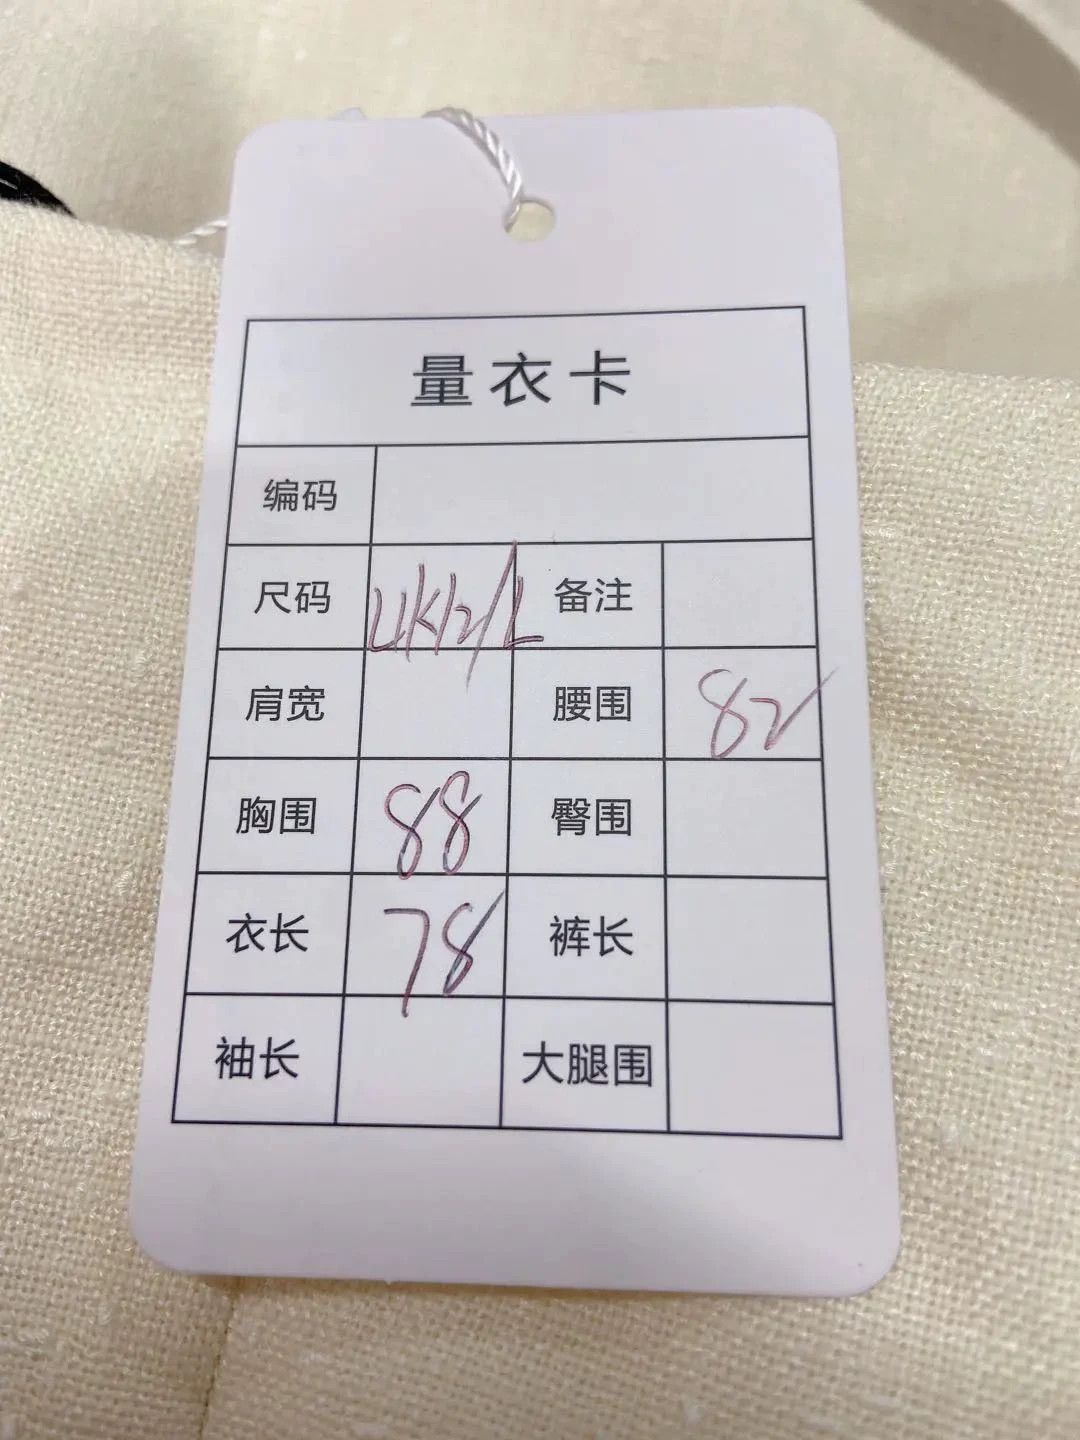 量衣卡
编码
尺码 UK12/L 备注
肩宽 腰围 82
胸围 88 臀围
衣长 78 裤长
袖长 大腿围